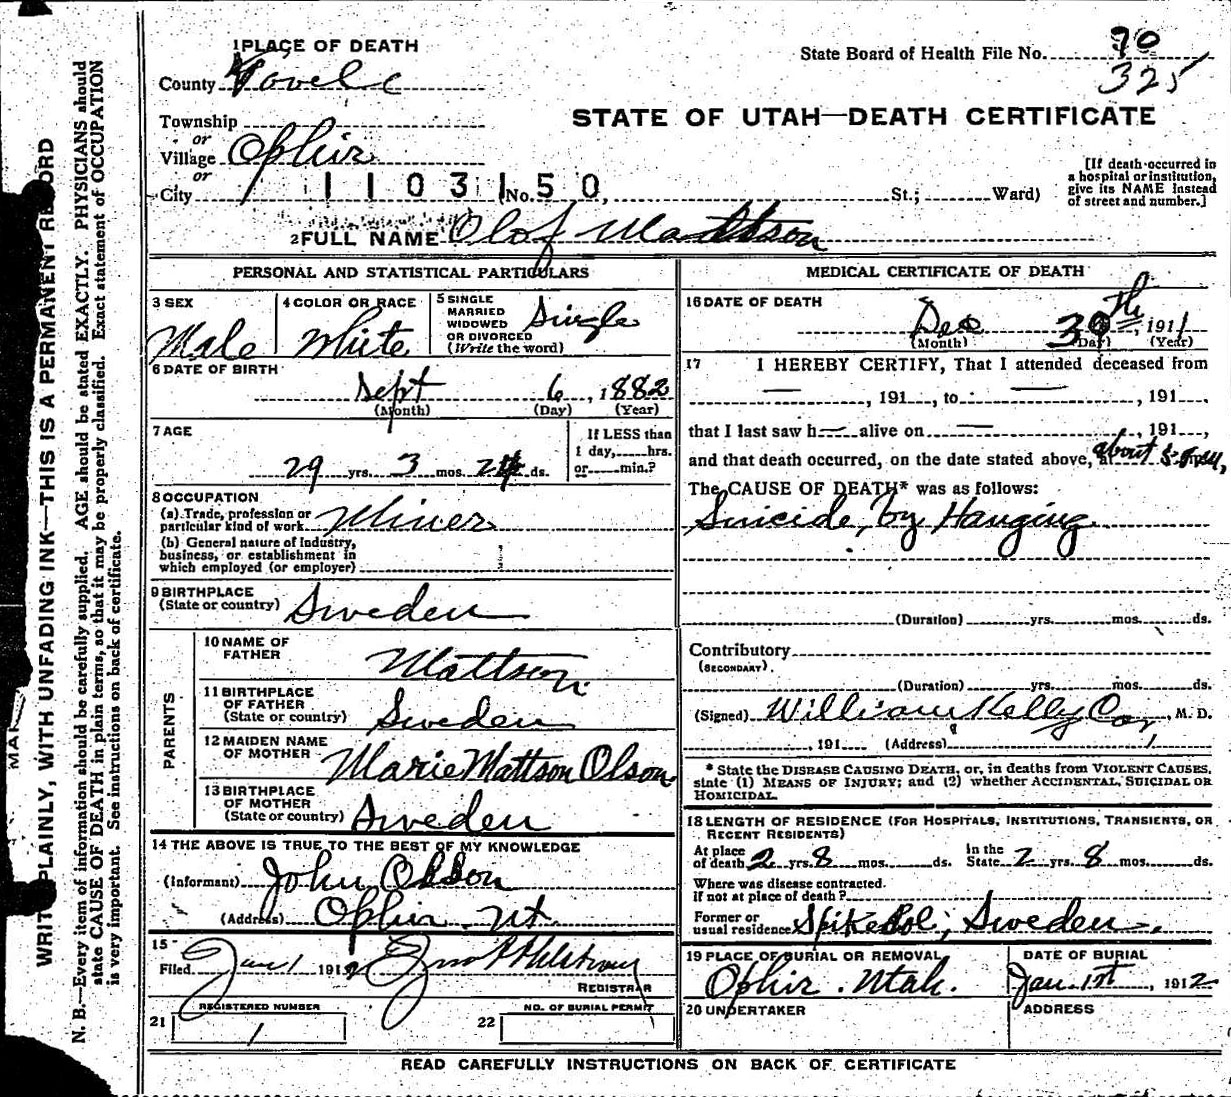 1 PLACE OF DEATH
State Board of Health File No. 90
325
County Tooele
STATE OF UTAH—DEATH CERTIFICATE
Township
or
Village Ophir
or
City 1103150 No. St.; Ward)
[If death occurred in
a hospital or institution,
give its NAME instead
of street and number.]
2 FULL NAME Olof Mattson
PERSONAL AND STATISTICAL PARTICULARS
3 SEX
Male
4 COLOR OR RACE
White
5 SINGLE
MARRIED
WIDOWED
OR DIVORCED
(Write the word)
Single
6 DATE OF BIRTH
Sept 6, 1882
(Month) (Day) (Year)
7 AGE
29 yrs. 3 mos. 24 ds.
If LESS than
1 day, hrs.
or min.?
8 OCCUPATION
(a) Trade, profession or
particular kind of work Miner
(b) General nature of industry,
business, or establishment in
which employed (or employer)
9 BIRTHPLACE
(State or country) Sweden
PARENTS
10 NAME OF
FATHER Mattson
11 BIRTHPLACE
OF FATHER
(State or country) Sweden
12 MAIDEN NAME
OF MOTHER Marie Mattson Olson
13 BIRTHPLACE
OF MOTHER
(State or country) Sweden
14 THE ABOVE IS TRUE TO THE BEST OF MY KNOWLEDGE
(Informant) John Olson
(Address) Ophir Ut
15
Filed Jan 1 1912
REGISTRAR
REGISTERED NUMBER
21 1
NO. OF BURIAL PERMIT
22
MEDICAL CERTIFICATE OF DEATH
16 DATE OF DEATH
Dec 30th, 1911
(Month) (Day) (Year)
17 I HEREBY CERTIFY, That I attended deceased from
— , 191 , to — , 191 ,
that I last saw h— alive on — 191 ,
and that death occurred, on the date stated above, at about
The CAUSE OF DEATH* was as follows:
Suicide, by Hanging
(Duration) yrs. mos. ds.
Contributory
(SECONDARY)
(Duration) yrs. mos. ds.
(Signed) William Kelly Cor, M. D.
, 191 (Address)
* State the DISEASE CAUSING DEATH, or, in deaths from VIOLENT CAUSES,
state (1) MEANS OF INJURY; and (2) whether ACCIDENTAL, SUICIDAL OR
HOMICIDAL.
18 LENGTH OF RESIDENCE (FOR HOSPITALS, INSTITUTIONS, TRANSIENTS, OR
RECENT RESIDENTS)
At place
of death 2 yrs. 8 mos. ds.
In the
State 2 yrs. 8 mos. ds.
Where was disease contracted.
if not at place of death?
Former or
usual residence Sweden.
19 PLACE OF BURIAL OR REMOVAL
Ophir. Utah.
DATE OF BURIAL
Jan. 1st, 1912
20 UNDERTAKER
ADDRESS
READ CAREFULLY INSTRUCTIONS ON BACK OF CERTIFICATE
WRITE PLAINLY, WITH UNFADING INK—THIS IS A PERMANENT RECORD
N. B.—Every item of information should be carefully supplied. AGE should be stated EXACTLY. PHYSICIANS should
state CAUSE OF DEATH in plain terms, so that it may be properly classified. Exact statement of OCCUPATION
is very important. See instructions on back of certificate.